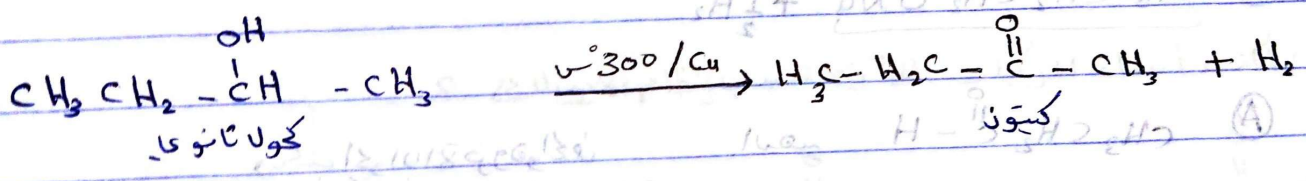 OH
CH₃ CH₂ - CH - CH₃ س°300 / Cu → H₃C - H₂C - C - CH₃ + H₂
O
كحول ثانوي
كيتون